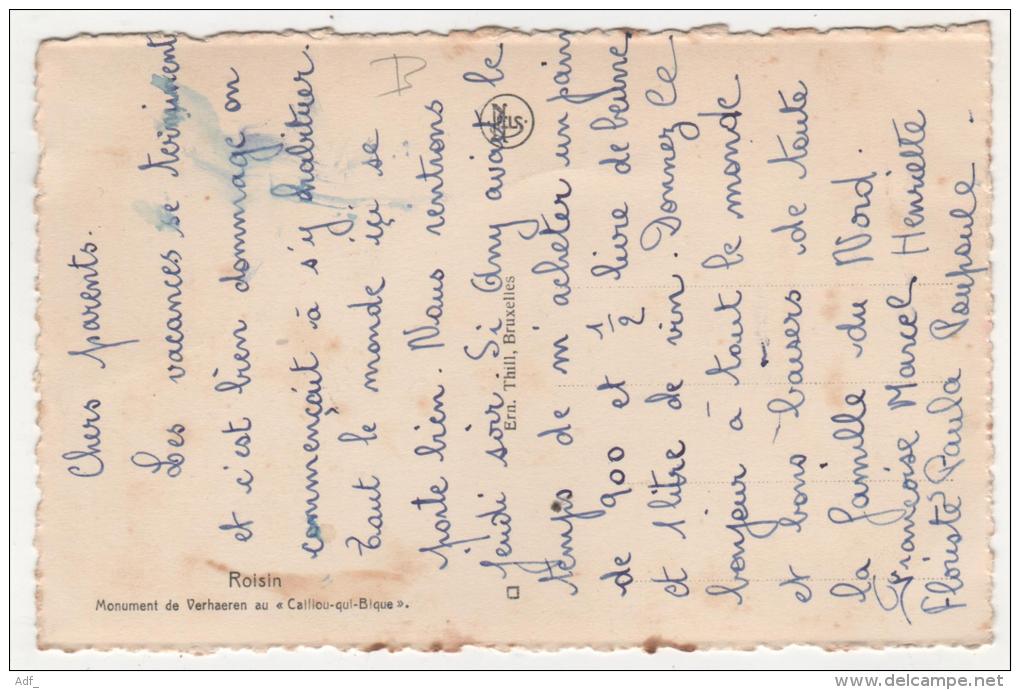 Chers parents.
Les vacances se terminent
et c'est bien dommage on
commençait à s'y habituer.
Tout le monde içi se
porte bien. Nous rentrons
jeudi soir. Si Any avait le
temps de m'acheter un pain
de 900 et 1/2 livre de beurre
et 1 litre de vin. Donnez le
bonjour à tout le monde
et bons baisers de toute
la famille du Nord.
Françoise Marcel Henriette
Paula Poupoule.
Roisin
Monument de Verhaeren au « Caillou-qui-Bique ».
NELS
Ern. Thill, Bruxelles
Adf_
delcampe.net